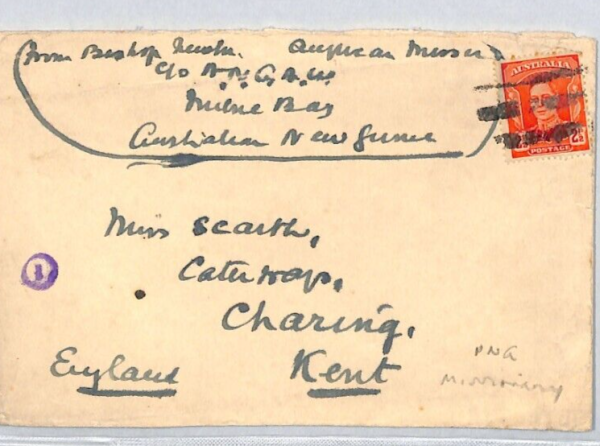 From Bishop Newton. Anglican Mission
c/o A.N.G.A.U.
Milne Bay
Australian New Guinea
AUSTRALIA
POSTAGE
1
Miss Scarth,
Charing,
England Kent
PNG
missionary